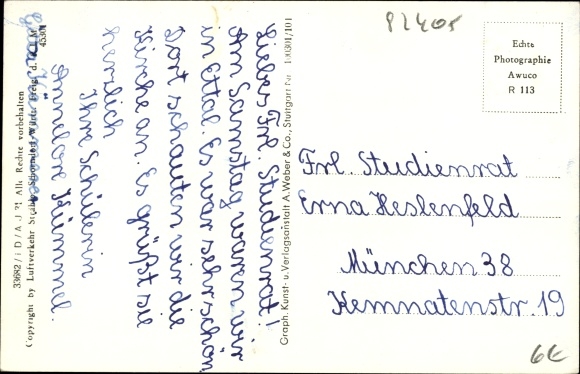 82405
Echte
Photographie
Awuco
R 113
Liebes Frl. Studienrat!
Am Samstag waren wir
in Ettal. Es war sehr schön
Dort schauten wir die
Kirche an. Es grüßt sie
herzlich
Ihre Schülerin
Annelore Kümmel.
Frl. Studienrat
Erna Heslenfeld
München 38
Kemnatenstr. 19
Graph. Kunst- u. Verlagsanstalt A. Weber & Co., Stuttgart Nr. 100301/101
33682/i D/A.J ?! Alle Rechte vorbehalten
Copyright by Luftverkehr Strähle, Schorndorf, Württ. Freig. d.
45301
6€